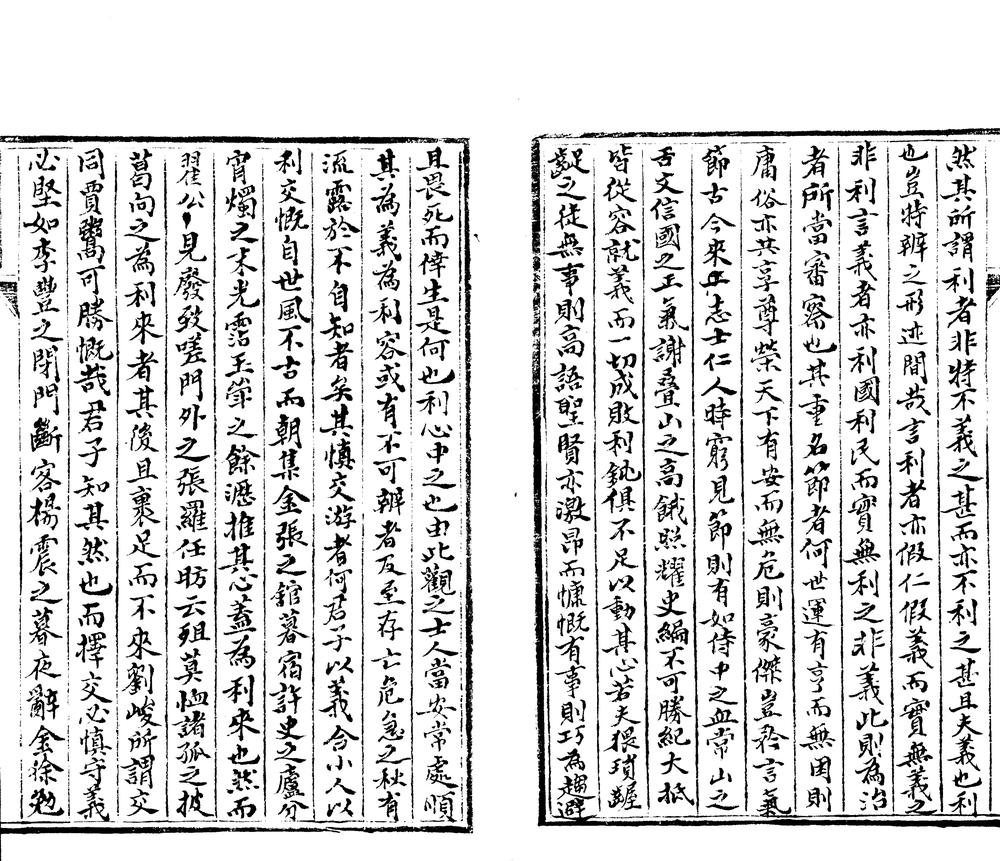 然其所謂利者非特不義之甚而亦不利之甚且夫義也利
也豈特辨之形迹間哉言利者亦假仁假義而實無義之
非利言義者亦利國利民而實無利之非義此則為治
者所當審察也其重名節者何世運有亨而無困則
庸俗亦共享尊榮天下有安而無危則豪傑豈矜言氣
節古今來正志士仁人時窮見節則有如侍中之血常山之
舌文信國之正氣謝疊山之高餓照耀史編不可勝紀大抵
皆從容就義而一切成敗利鈍俱不足以動其心若夫猥瑣齷
齪之徒無事則高語聖賢亦激昂而慷慨有事則巧為趨避
且畏死而倖生是何也利心中之也由此觀之士人當安常處順
其為義為利容或有不可辨者及至存亡危急之秋有
流露於不自知者矣其慎交游者何君子以義合小人以
利交慨自世風不古而朝集金張之舘暮宿許史之廬分
宵燭之末光霑玉斝之餘瀝推其心蓋為利來也然而
翟公見廢致嗟門外之張羅任昉云殂莫恤諸孤之披
葛向之為利來者其後且裹足而不來劉峻所謂交
同賈鬻可勝慨哉君子知其然也而擇交必慎守義
必堅如李豐之閉門斷客楊震之暮夜辭金徐勉